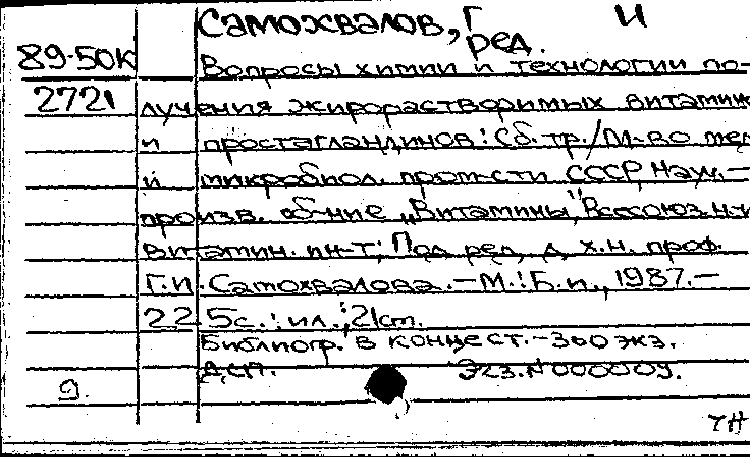 Самохвалов, Г И
ред.
89-50К
Вопросы химии и технологии по-
2721 лучения жирорастворимых витамино
и простагландинов: Сб. тр./М-во мед
и микробиол. пром-сти СССР, Науч.-
произв. об-ние "Витамины", Всесоюз. н-и
витамин. ин-т; Под ред. д. х. н. проф.
Г. И. Самохвалова. - М.: Б. и., 1987. -
225 с.: ил.; 21 см.
Библиогр. в конце ст. - 300 экз.
ДСП. Экз. N 000009.
9.